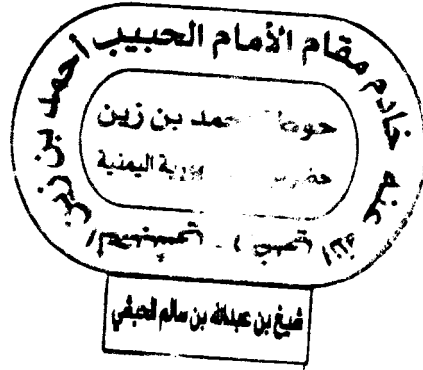 خادم مقام الأمام الحبيب أحمد بن زين
الله عنه
حوطة أحمد بن زين
اليمنية
شيخ بن عبدالله بن سالم الحبشي